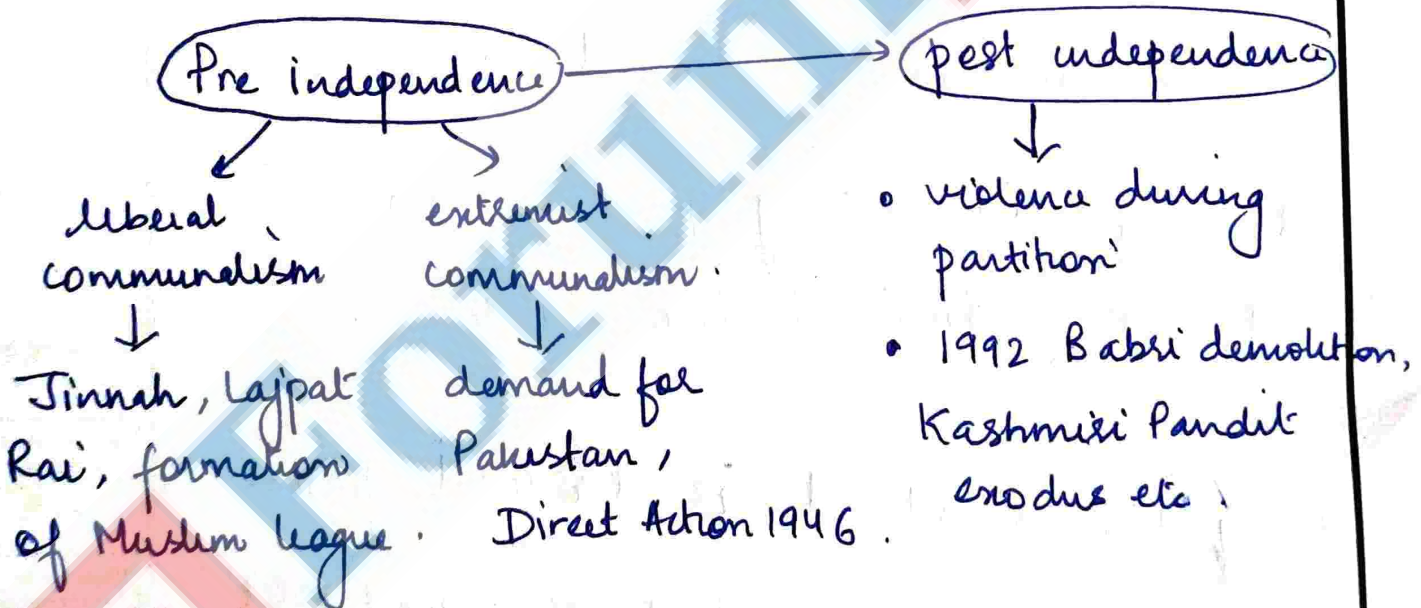 Pre independence
post independence
liberal
communalism
Jinnah, Lajpat
Rai, formation
of Muslim league.
extremist
communalism.
demand for
Pakistan,
Direct Action 1946.
• violence during
partition
• 1992 Babri demolition,
Kashmiri Pandit
exodus etc.
Forum